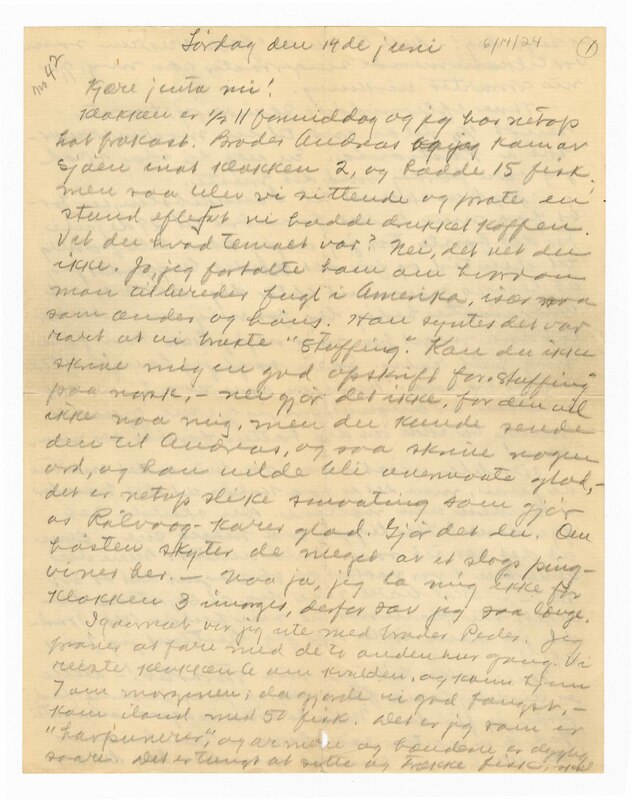 Lördag den 14de juni 6/14/24 1
no 42
Kjære jenta mi!
Klokken er ½ 11 formiddag og jeg har netop
hat frokost. Broder Andreas og jeg kom av
sjöen inat klokken 2, og hadde 15 fisk
men saa blev vi sittende og prate en
stund efteråt vi hadde drukket kaffen.
Vet du hvad temaet var? Nei, det vet du
ikke. Jo, jeg fortalte ham om hvordan
man tilbereder fugl i Amerika, især
som ænder og höns. Han syntes det var
rart at vi brukte "Stuffing". Kan du ikke
skrive mig en god opskrift for "Stuffing"
paa norsk, – nei gjör det ikke, for den vil
ikke naa mig, men du kunde sende
den til Andreas, og saa skrive nogen
ord, og han vilde bli overmaate glad, –
det er netop slike smaating som gjör
os Rölvaag-karer glad. Gjör det du. Om
hösten skyter de meget av et slags ping-
viner her. – Naa ja, jeg la mig ikke för
klokken 3 imorges, derfor sov jeg saa længe.
Igaarnat var jeg ute med broder Peder. Jeg
pröver at fare med de to anden hver gang. Vi
reiste klokken 6 om kvelden, og kom hjem
7 om morgenen; da gjorde vi god fangst, –
kom iland med 50 fisk. Det er jeg som er
"harpunerer", og armene og hændene er dygtig
saare. Det er tungt at sitte og trække fisk,